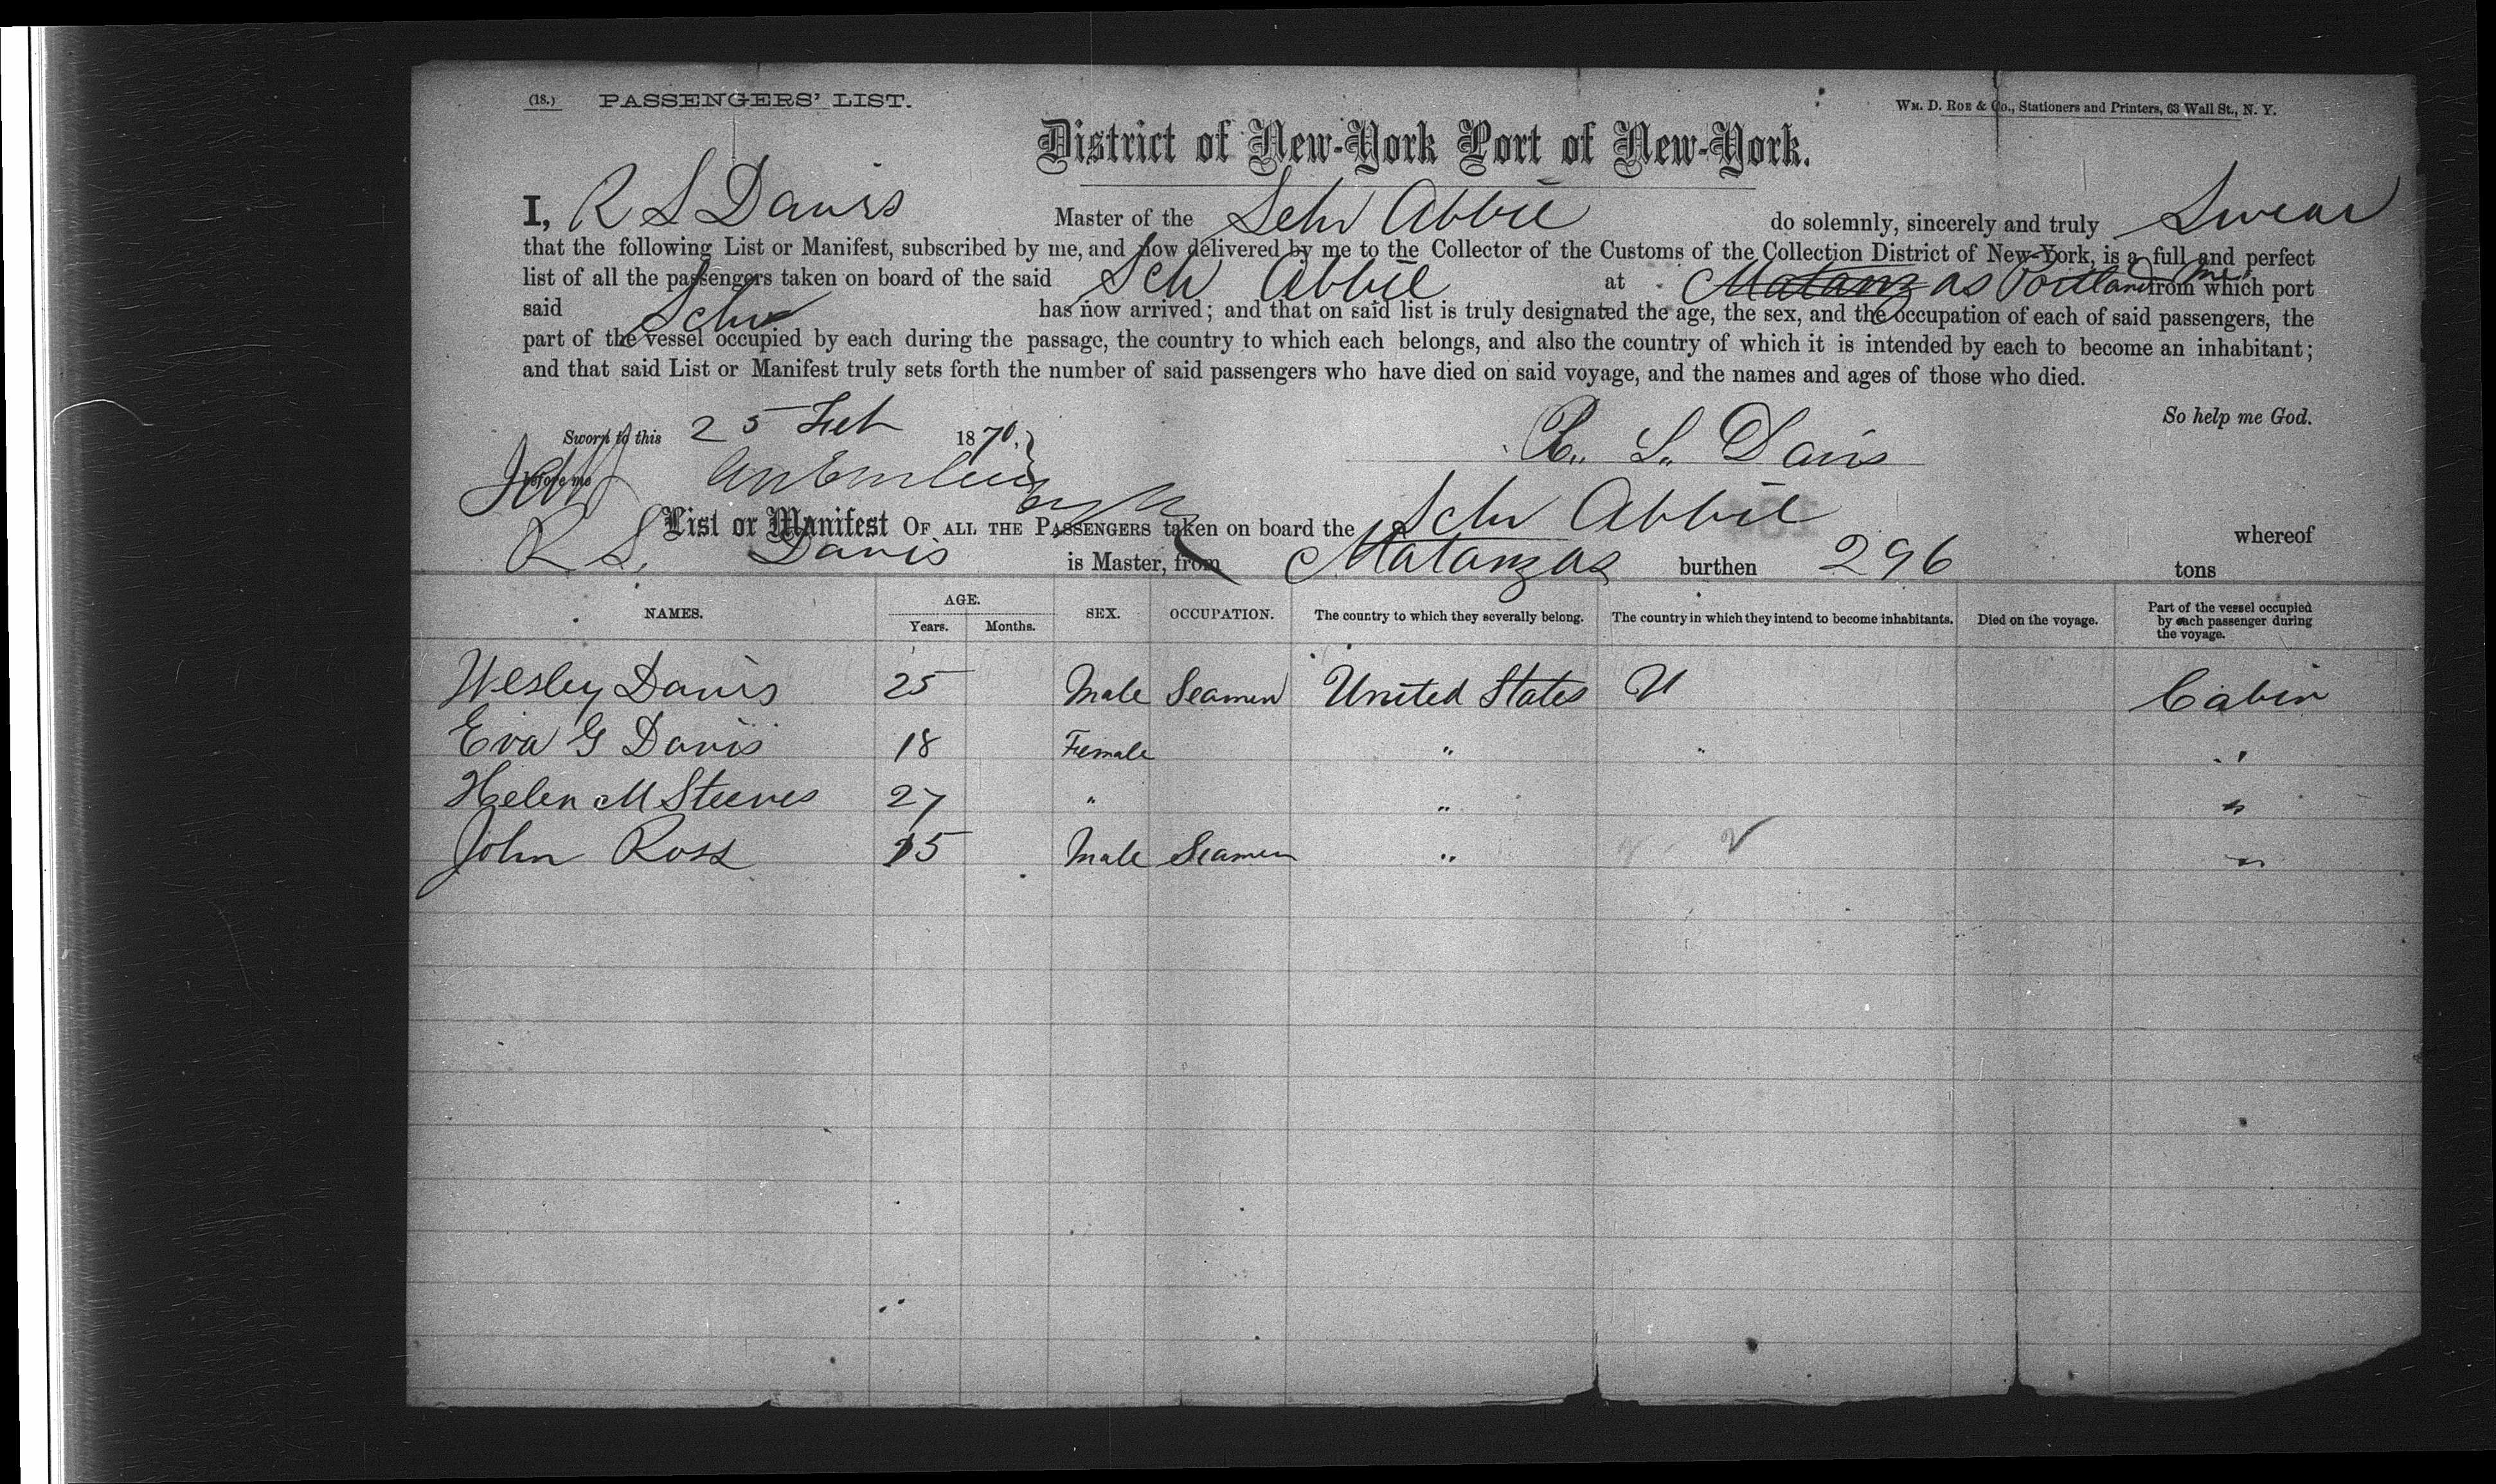 (18.) PASSENGERS' LIST. WM. D. ROE & Co., Stationers and Printers, 63 Wall St., N. Y.
District of New-York Port of New-York.
I, R S Davis Master of the Schr Abbie do solemnly, sincerely and truly Swear
that the following List or Manifest, subscribed by me, and now delivered by me to the Collector of the Customs of the Collection District of New-York, is a full and perfect
list of all the passengers taken on board of the said Sch Abbie at Matanzas Portland Me from which port
said Schr has now arrived; and that on said list is truly designated the age, the sex, and the occupation of each of said passengers, the
part of the vessel occupied by each during the passage, the country to which each belongs, and also the country of which it is intended by each to become an inhabitant;
and that said List or Manifest truly sets forth the number of said passengers who have died on said voyage, and the names and ages of those who died.
So help me God.
Sworn to this 25 Feb 1870, R. S. Davis
before me
List or Manifest OF ALL THE PASSENGERS taken on board the Schr Abbie whereof
R S. Davis is Master, from Matanzas burthen 296 tons
NAMES. AGE. Years. Months. SEX. OCCUPATION. The country to which they severally belong. The country in which they intend to become inhabitants. Died on the voyage. Part of the vessel occupied by each passenger during the voyage.
Wesley Davis 25 Male Seamen United States U Cabin
Eva G Davis 18 Female " " "
Helen M Steeves 27 " " "
John Ross 15 Male Seamen " "